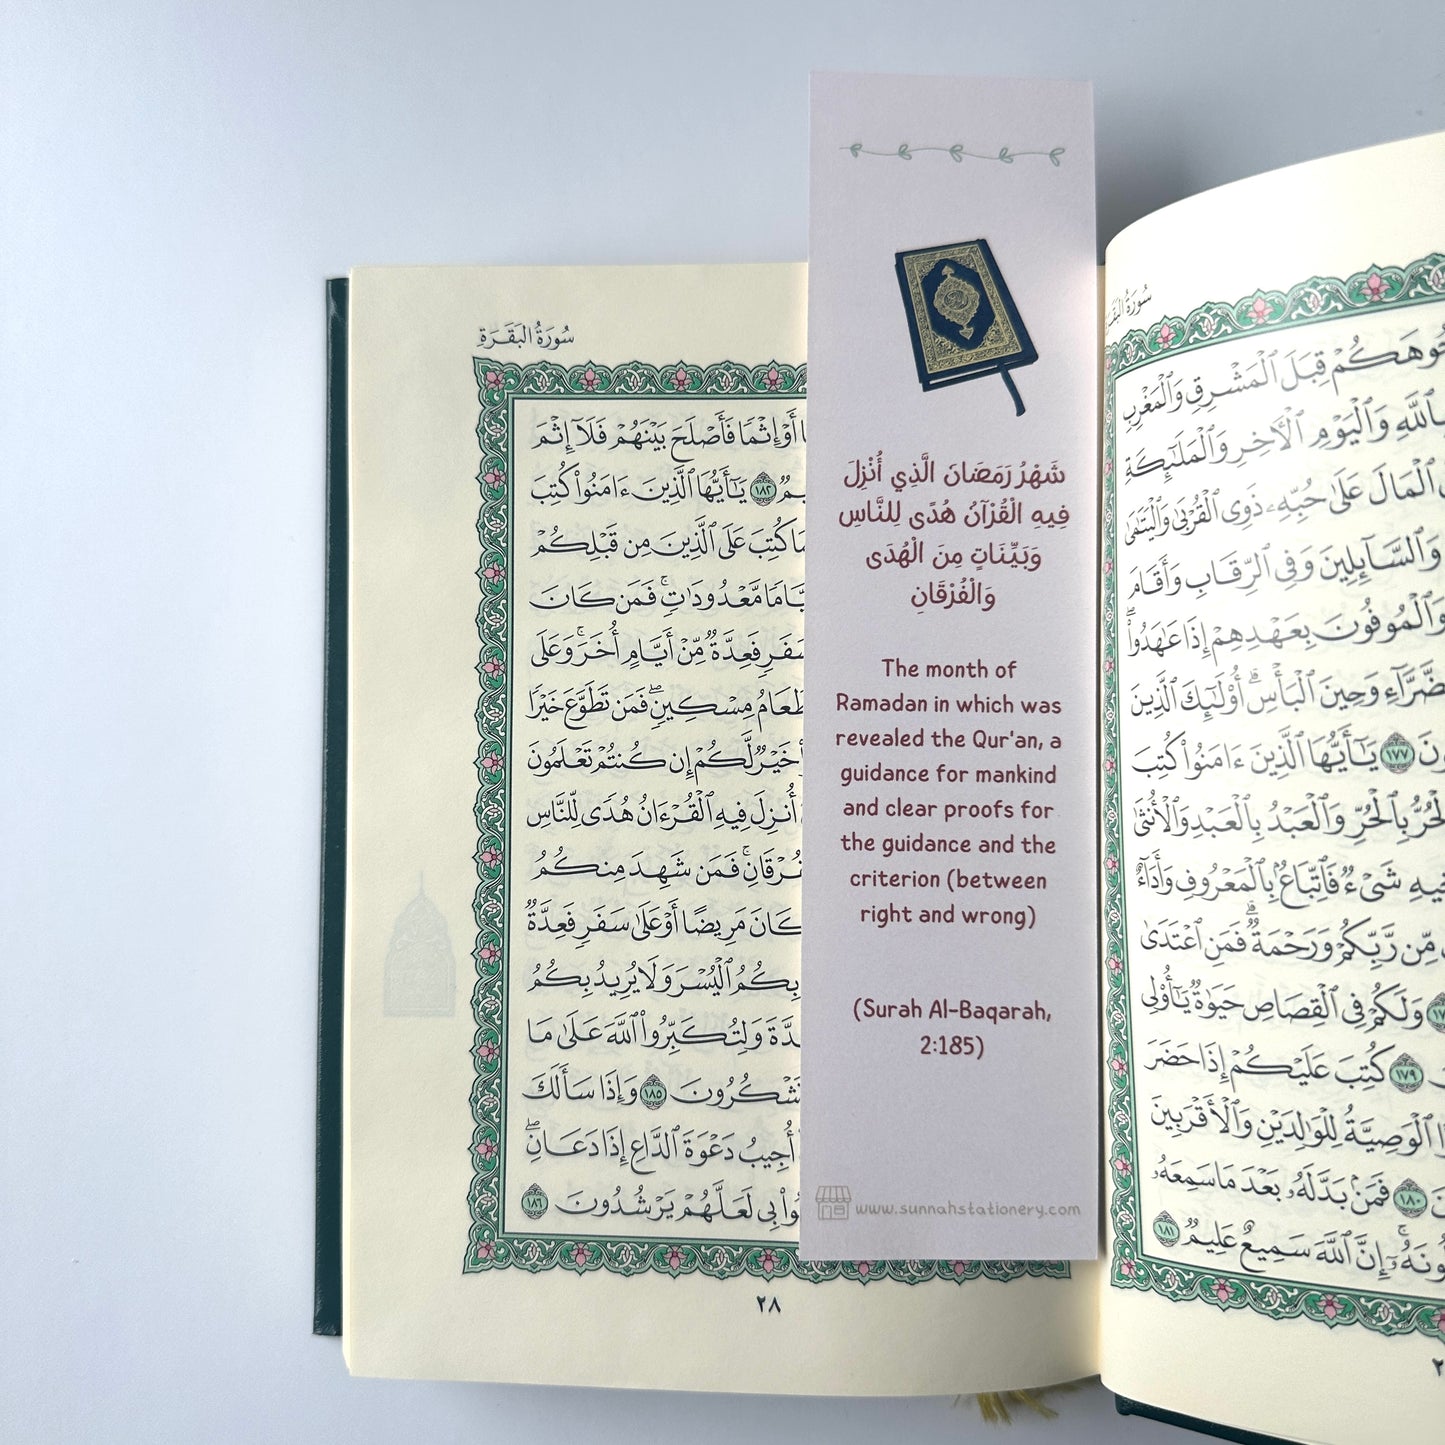 سُورَةُ البَقَرَةِ
أَوْ إِثْمًا فَأَصْلَحَ بَيْنَهُمْ فَلَآ إِثْمَ
١٨٢ يَـٰٓأَيُّهَا ٱلَّذِينَ ءَامَنُوا۟ كُتِبَ
كُتِبَ عَلَى ٱلَّذِينَ مِن قَبْلِكُمْ
مَّعْدُودَٰتٍۢ ۚ فَمَن كَانَ
فَعِدَّةٌۭ مِّنْ أَيَّامٍ أُخَرَ ۚ وَعَلَى
طَعَامُ مِسْكِينٍۢ ۖ فَمَن تَطَوَّعَ خَيْرًۭا
خَيْرٌۭ لَّكُمْ إِن كُنتُمْ تَعْلَمُونَ
أُنزِلَ فِيهِ ٱلْقُرْءَانُ هُدًۭى لِّلنَّاسِ
فَمَن شَهِدَ مِنكُمُ
كَانَ مَرِيضًا أَوْ عَلَىٰ سَفَرٍۢ فَعِدَّةٌۭ
بِكُمُ ٱلْيُسْرَ وَلَا يُرِيدُ بِكُمُ
وَلِتُكَبِّرُوا۟ ٱللَّهَ عَلَىٰ مَا
١٨٥ وَإِذَا سَأَلَكَ
أُجِيبُ دَعْوَةَ ٱلدَّاعِ إِذَا دَعَانِ ۖ
بِى لَعَلَّهُمْ يَرْشُدُونَ ١٨٦
٢٨
شَهْرُ رَمَضَانَ الَّذِي أُنْزِلَ
فِيهِ الْقُرْآنُ هُدًى لِلنَّاسِ
وَبَيِّنَاتٍ مِنَ الْهُدَى
وَالْفُرْقَانِ
The month of
Ramadan in which was
revealed the Qur'an, a
guidance for mankind
and clear proofs for
the guidance and the
criterion (between
right and wrong)
(Surah Al-Baqarah,
2:185)
www.sunnahstationery.com
سُورَةُ
قِبَلَ ٱلْمَشْرِقِ وَٱلْمَغْرِبِ
وَٱلْيَوْمِ ٱلْـَٔاخِرِ وَٱلْمَلَـٰٓئِكَةِ
ٱلْمَالَ عَلَىٰ حُبِّهِۦ ذَوِى ٱلْقُرْبَىٰ وَٱلْيَتَـٰمَىٰ
وَٱلسَّآئِلِينَ وَفِى ٱلرِّقَابِ وَأَقَامَ
وَٱلْمُوفُونَ بِعَهْدِهِمْ إِذَا عَـٰهَدُوا۟ ۖ
وَحِينَ ٱلْبَأْسِ ۗ أُو۟لَـٰٓئِكَ ٱلَّذِينَ
١٧٧ يَـٰٓأَيُّهَا ٱلَّذِينَ ءَامَنُوا۟ كُتِبَ
بِٱلْحُرِّ وَٱلْعَبْدُ بِٱلْعَبْدِ وَٱلْأُنثَىٰ
شَىْءٌۭ فَٱتِّبَاعٌۢ بِٱلْمَعْرُوفِ وَأَدَآءٌ
مِّن رَّبِّكُمْ وَرَحْمَةٌۭ ۗ فَمَنِ ٱعْتَدَىٰ
وَلَكُمْ فِى ٱلْقِصَاصِ حَيَوٰةٌۭ يَـٰٓأُو۟لِى
١٧٩ كُتِبَ عَلَيْكُمْ إِذَا حَضَرَ
ٱلْوَصِيَّةُ لِلْوَٰلِدَيْنِ وَٱلْأَقْرَبِينَ
١٨٠ فَمَنۢ بَدَّلَهُۥ بَعْدَ مَا سَمِعَهُۥ
إِنَّ ٱللَّهَ سَمِيعٌ عَلِيمٌۭ ١٨١